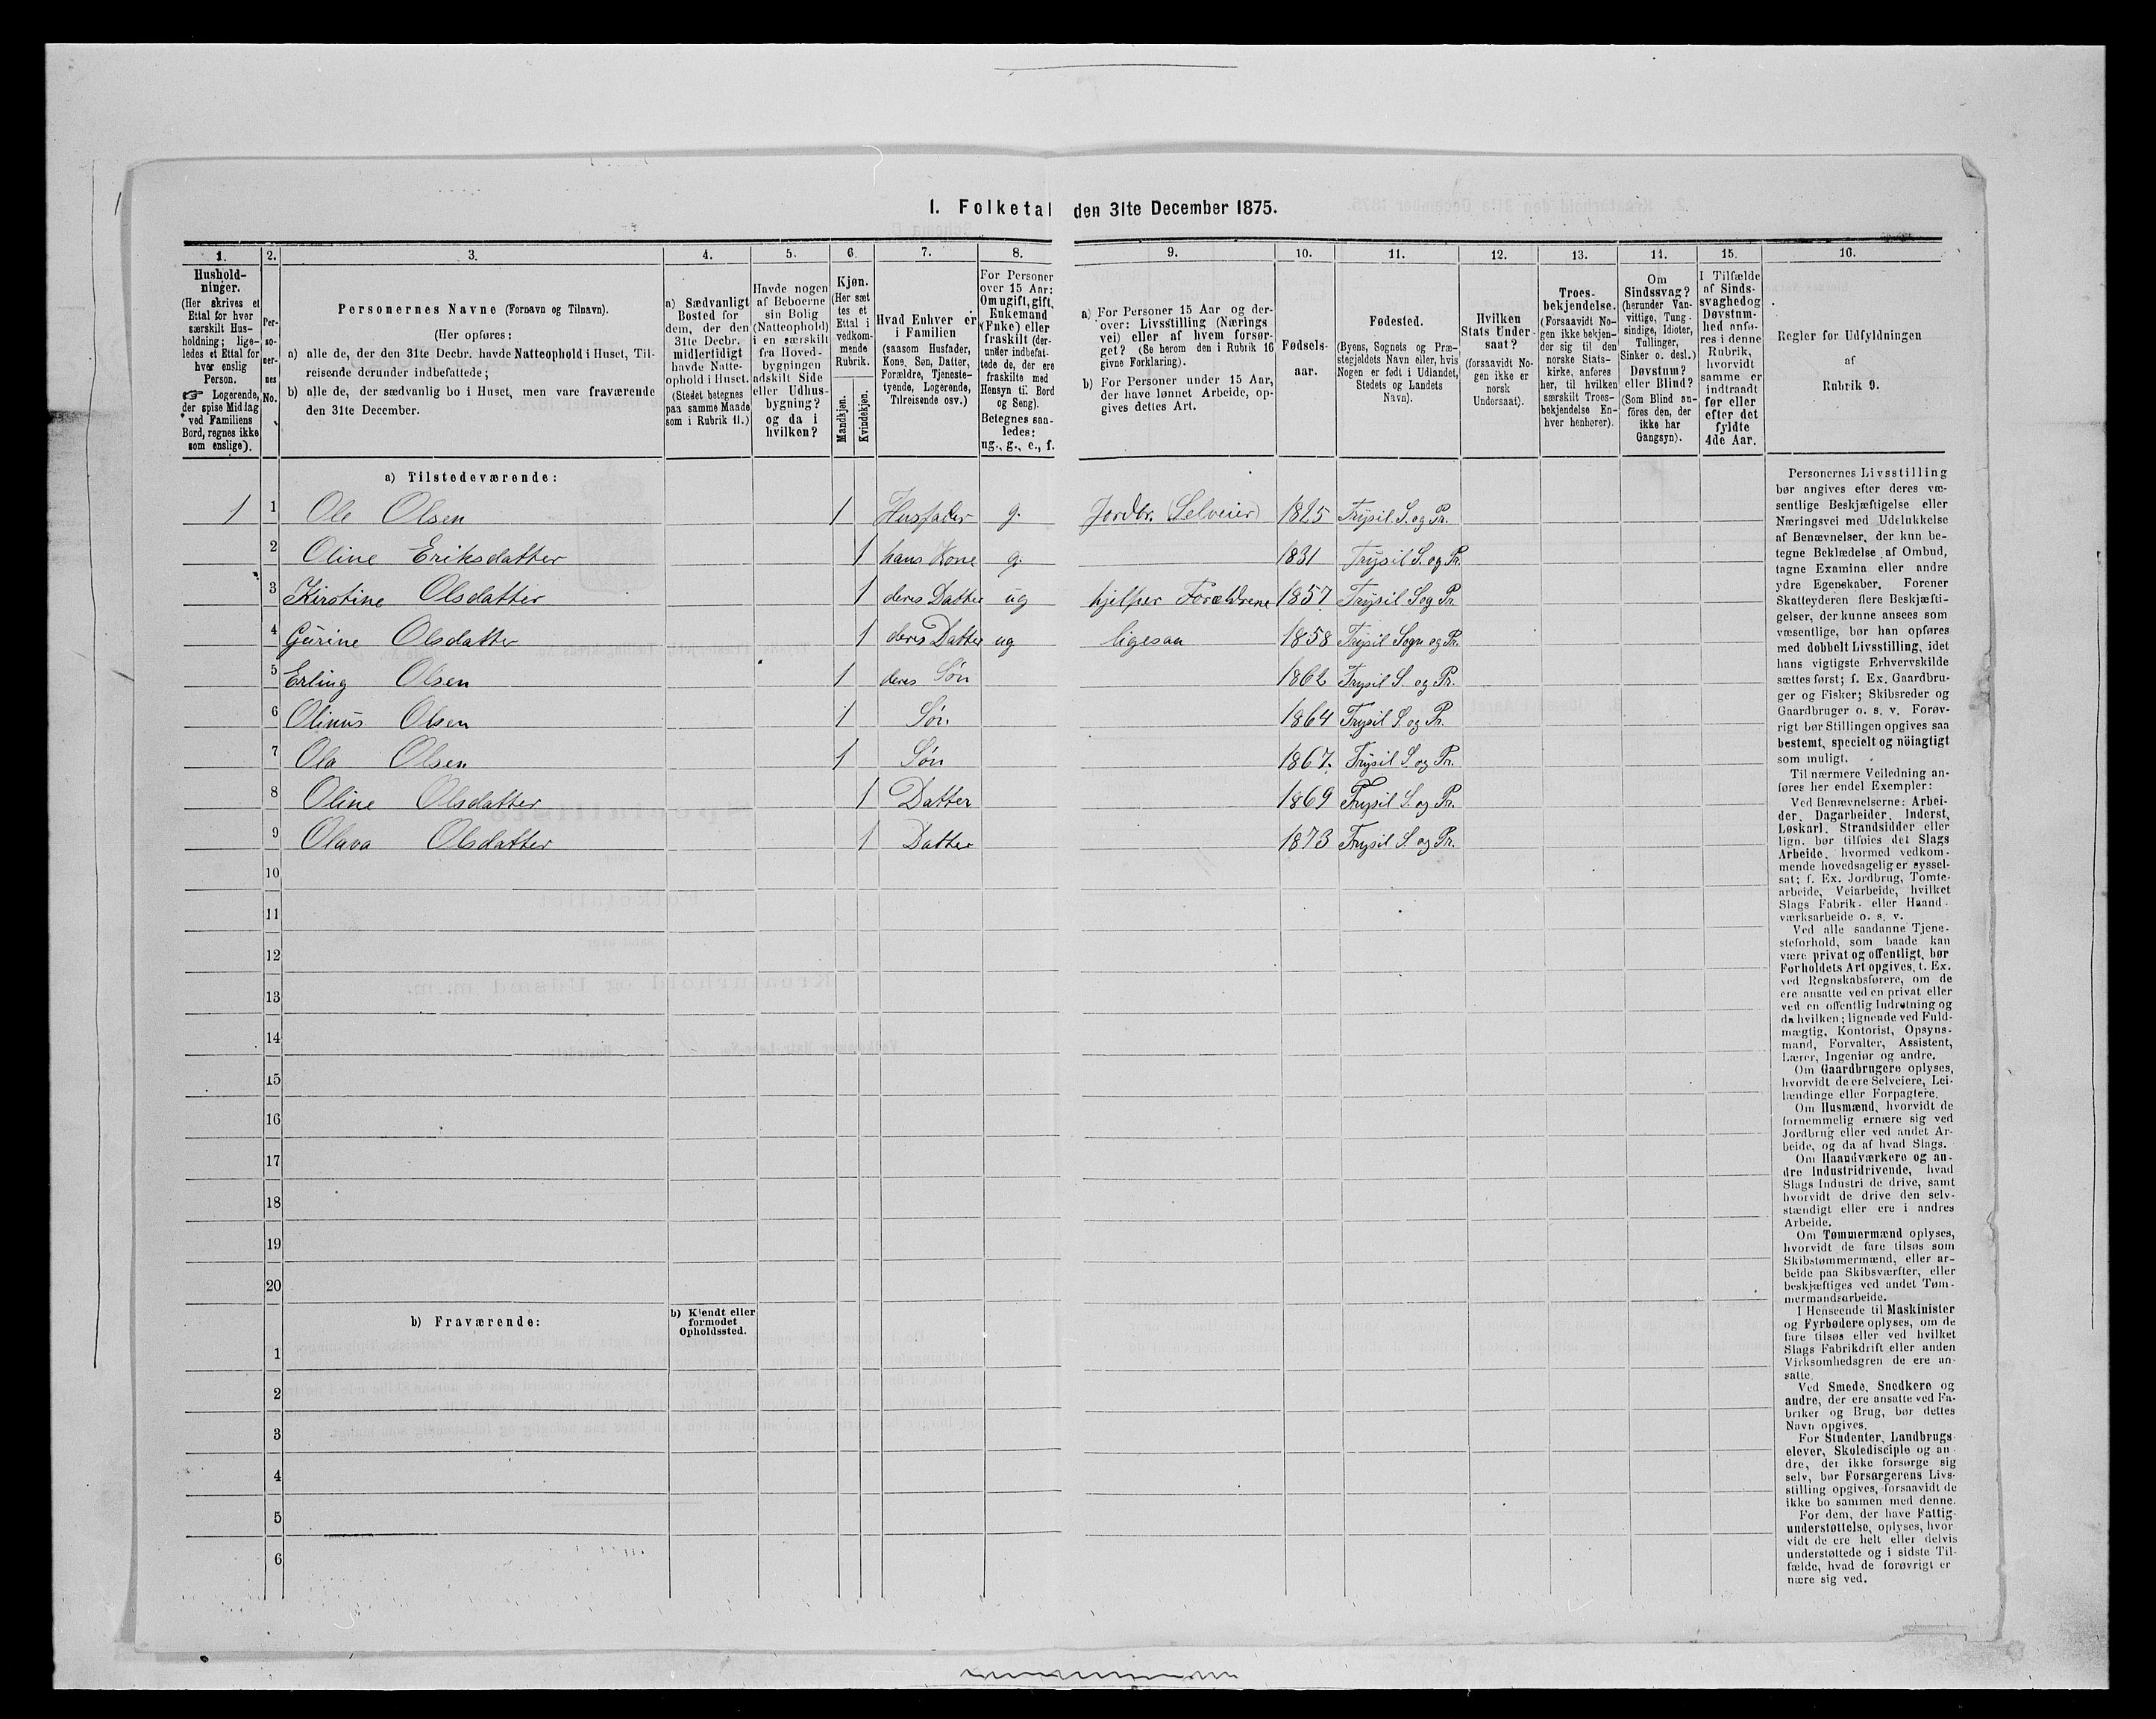 1. Folketal den 31te December 1875.
1. 2. 3. 4. 5. 6. 7. 8. 9. 10. 11. 12. 13. 14. 15. 16.
Hushold-
ninger.
(Her skrives et
Ettal for hver
særskilt Hus-
holdning; lige-
ledes et Ettal for
hver enslig
Person.
☞ Logerende,
der spise Middag
ved Familiens
Bord, regnes ikke
som enslige).
Per-
so-
ner-
nes
No.
Personernes Navne (Fornavn og Tilnavn).
(Her opføres:
a) alle de, der den 31te Decbr. havde Natteophold i Huset, Til-
reisende derunder indbefattede;
b) alle de, der sædvanlig bo i Huset, men vare fraværende
den 31te December.
a) Sædvanligt
Bosted for
dem, der den
31te Decbr.
midlertidigt
havde Natte-
ophold i Huset.
(Stedet betegnes
paa samme Maade
som i Rubrik 11.)
Havde nogen
af Beboerne
sin Bolig
(Natteophold)
i en særskilt
fra Hoved-
bygningen
adskilt Side
eller Udhus-
bygning?
og da i
hvilken?
Kjøn.
(Her sæt
tes et
Ettal i
vedkom-
mende
Rubrik.
Mandkjøn.
Kvindekjøn.
Hvad Enhver er
i Familien
(saasom Husfader,
Kone, Søn, Datter,
Forældre, Tjeneste-
tyende, Logerende,
Tilreisende osv.)
For Personer
over 15 Aar:
Om ugift, gift,
Enkemand
(Enke) eller
fraskilt (der-
under indbefat-
tede de, der ere
fraskilte med
Hensyn til Bord
og Seng).
Betegnes saa-
ledes:
ug., g., e., f.
a) For Personer 15 Aar og der-
over: Livsstilling (Nærings
vei) eller af hvem forsør-
get? (Se herom den i Rubrik 16
givne Forklaring).
b) For Personer under 15 Aar,
der have lønnet Arbeide, op-
gives dettes Art.
Fødsels-
aar.
Fødested.
(Byens, Sognets og Præ-
stegjeldets Navn eller, hvis
Nogen er født i Udlandet,
Stedets og Landets
Navn).
Hvilken
Stats Under-
saat?
(forsaavidt No-
gen ikke er
norsk
Undersaat).
Troes-
bekjendelse.
(Forsaavidt No-
gen ikke bekjen-
der sig til den
norske Stats-
kirke, anføres
her, til hvilken
særskilt Troes-
bekjendelse En-
hver henhører).
Om
Sindssvag?
(herunder Van-
vittige, Tung-
sindige, Idioter,
Tullinger,
Sinker o. desl.)
Døvstum?
eller Blind?
(Som Blind an-
føres den, der
ikke har
Gangsyn).
I Tilfælde
af Sinds-
svaghed og
Døvstum-
hed anfø-
res i denne
Rubrik,
hvorvidt
samme er
indtraadt
før eller
efter det
fyldte
4de Aar.
Regler for Udfyldningen
af
Rubrik 9.
a) Tilstedeværende:
1 1 Ole Olsen 1 Husfader g. Jordbr. (Selveier) 1825 Trysil S. og Pr.
2 Oline Eriksdatter 1 hans Kone g. 1831 Trysil S. og Pr.
3 Kirstine Olsdatter 1 deres Datter ug hjelper Forældrene 1857 Trysil S og Pr
4 Gurine Olsdatter 1 deres Datter ug ligesaa 1858 Trysil Sogn og Pr.
5 Erling Olsen 1 deres Søn 1862 Trysil S. og Pr.
6 Olinus Olsen 1 Søn 1864 Trysil S. og Pr.
7 Ola Olsen 1 Søn 1867. Trysil S. og Pr.
8 Oline Olsdatter 1 Datter 1869 Trysil S. og Pr.
9 Olava Olsdatter 1 Datter 1873 Trysil S. og Pr.
10
11
12
13
14
15
16
17
18
19
20
b) Fraværende:
b) Kjendt eller
formodet
Opholdssted.
1
2
3
4
5
6
Personernes Livsstilling
bør angives efter deres væ-
sentlige Beskjæftigelse eller
Næringsvei med Udelukkelse
af Benævnelser, der kun be-
tegne Beklædelse af Ombud,
tagne Examina eller andre
ydre Egenskaber. Forener
Skatteyderen flere Beskjæfti-
gelser, der kunne ansees som
væsentlige, bør han opføres
med dobbelt Livsstilling, idet
hans vigtigste Erhvervskilde
sættes først; f. Ex. Gaardbru-
ger og Fisker; Skibsreder og
Gaardbruger o. s. v. Forøv-
rigt bør Stillingen opgives saa
bestemt, specielt og nöiagtigt
som muligt.
Til nærmere Veiledning an-
føres her endel Exempler:
Ved Benævnelserne: Arbei-
der, Dagarbeider, Inderst,
Løskarl, Strandsidder eller
lign. bør tilføies det Slags
Arbeide, hvormed vedkom-
mende hovedsagelig er syssel-
sat; f. Ex. Jordbrug, Tomte-
arbeide, Veiarbeide, hvilket
Slags Fabrik- eller Haand-
værksarbeide o. s. v.
Ved alle saadanne Tjene-
steforhold, som baade kan
være privat og offentligt, bør
Forholdets Art opgives, t. Ex.
ved Regnskabsførere, om de
ere ansatte ved en privat eller
ved en offentlig Indretning og
da hvilken; lignende ved Fuld-
mægtig, Kontorist, Opsyns-
mand, Forvalter, Assistent,
Lærer, Ingeniør og andre.
Om Gaardbrugere oplyses,
hvorvidt de ere Selveiere, Lei-
lændinge eller Forpagtere.
Om Husmænd, hvorvidt de
fornemmelig ernære sig ved
Jordbrug eller ved andet Ar-
beide, og da af hvad Slags.
Om Haandværkere og an-
dre Industridrivende, hvad
Slags Industri de drive, samt
hvorvidt de drive den selv-
stændigt eller ere i andres
Arbeide.
Om Tømmermænd oplyses,
hvorvidt de fare tilsøs som
Skibstømmermænd, eller ar-
beide paa Skibsværfter, eller
beskjæftiges ved andet Tøm-
mermandsarbeide.
I Henseende til Maskinister
og Fyrbødere oplyses, om de
fare tilsøs eller ved hvilket
Slags Fabrikdrift eller anden
Virksomhedsgren de ere an-
satte.
Ved Smede, Snedkere og
andre, der ere ansatte ved Fa-
briker og Brug, bør dettes
Navn opgives.
For Studenter, Landbrugs-
elever, Skoledisciple og an-
dre, der ikke forsørge sig
selv, bør Forsørgerens Livs-
stilling opgives, forsaavidt de
ikke bo sammen med denne.
For dem, der have Fattig-
understøttelse, oplyses, hvor-
vidt de ere helt eller delvis
understøttede og i sidste Til-
fælde, hvad de forøvrigt er-
nære sig ved.